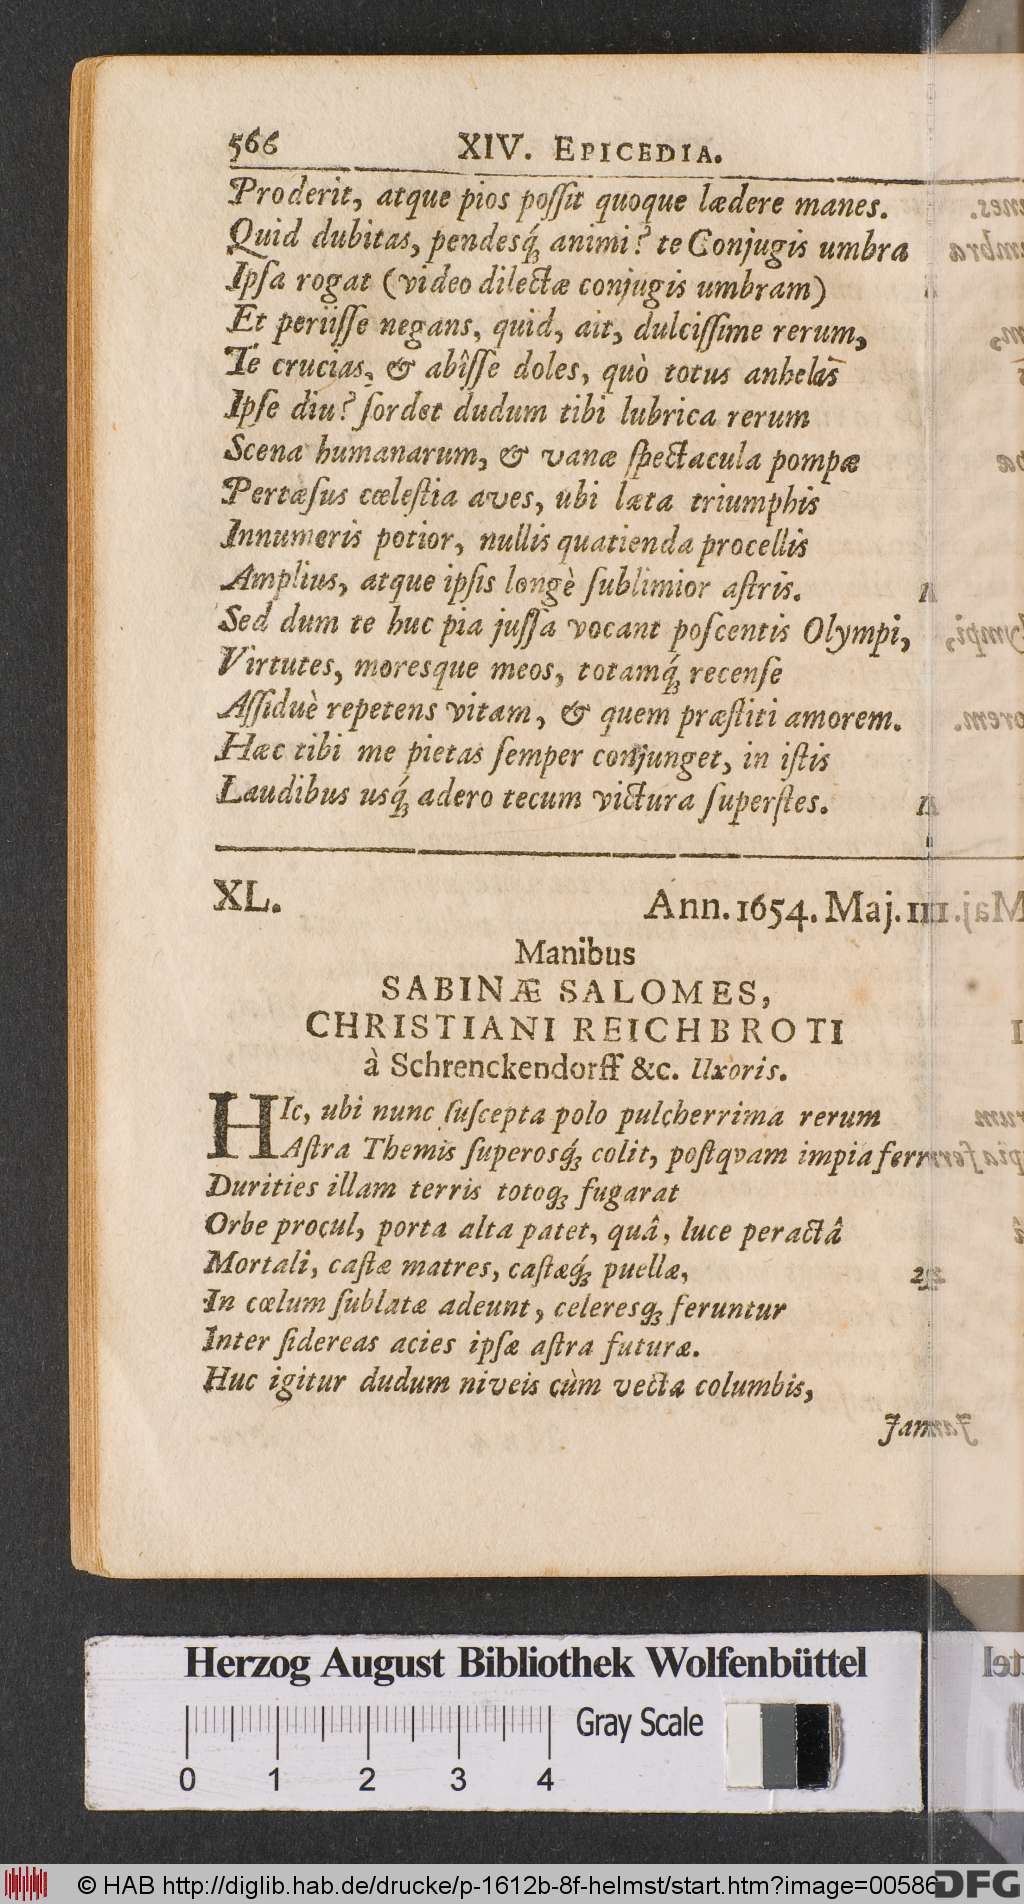 566 XIV. EPICEDIA.
Proderit, atque pios poſſit quoque lædere manes.
Quid dubitas, pendesq́; animi? te Conjugis umbra
Ipſa rogat (video dilectæ conjugis umbram)
Et periiſſe negans, quid, ait, dulciſſime rerum,
Te crucias, & abîſſe doles, quò totus anhelas
Ipſe diu? ſordet dudum tibi lubrica rerum
Scena humanarum, & vanæ ſpectacula pompæ
Pertæſus cœleſtia aves, ubi læta triumphis
Innumeris potior, nullis quatienda procellis
Amplius, atque ipſis longè ſublimior aſtris.
Sed dum te huc pia juſſa vocant poſcentis Olympi,
Virtutes, moresque meos, totamq́; recenſe
Aſſiduè repetens vitam, & quem præſtiti amorem.
Hæc tibi me pietas ſemper conjunget, in iſtis
Laudibus usq́; adero tecum victura ſuperſtes.
XL. Ann. 1654. Maj. III
Manibus
SABINÆ SALOMES,
CHRISTIANI REICHBROTI
à Schrenckendorff &c. Uxoris.
HIc, ubi nunc ſuſcepta polo pulcherrima rerum
Aſtra Themis ſuperosq́; colit, poſtqvam impia ferri
Durities illam terris totoq; fugarat
Orbe procul, porta alta patet, quâ, luce peractâ
Mortali, caſtæ matres, caſtæq́; puellæ,
In cœlum ſublatæ adeunt, celeresq; feruntur
Inter ſidereas acies ipſæ aſtra futuræ.
Huc igitur dudum niveis cùm vecta columbis,
Jam
Herzog August Bibliothek Wolfenbüttel
Gray Scale
0 1 2 3 4
© HAB http://diglib.hab.de/drucke/p-1612b-8f-helmst/start.htm?image=00586
DFG